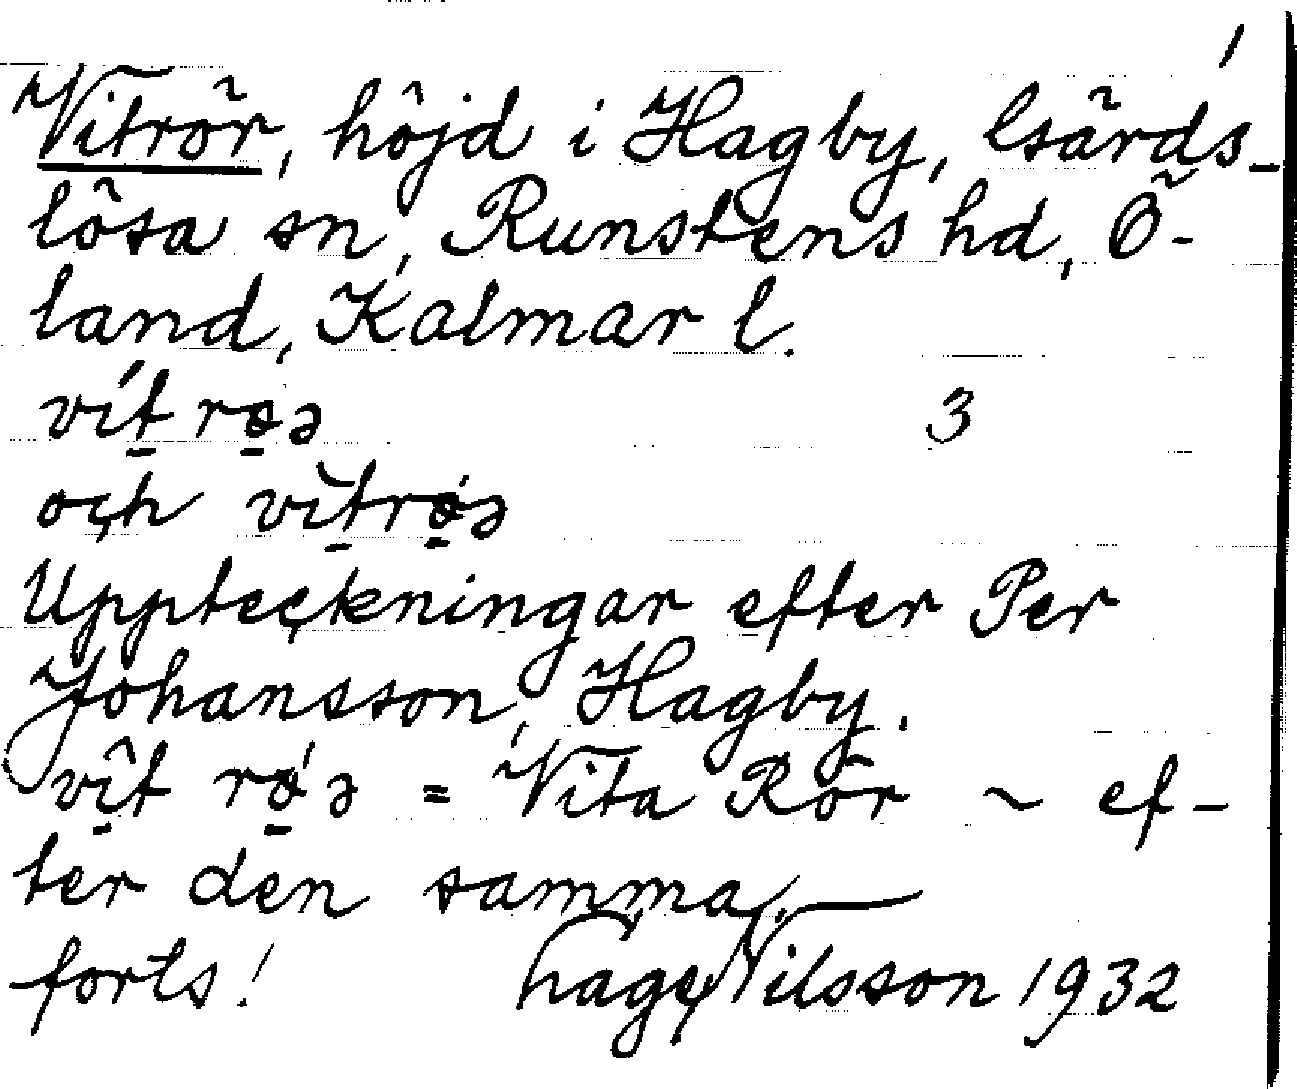 1
Vitrör, höjd i Hagby, Gärds-
lösa sn, Runstens hd, Ö-
land, Kalmar l.
vít̠ rø̠ə 3
och vìt̠rǿ̠ə
Uppteckningar efter Per
Johansson, Hagby.
vî̠t rǿ̠ə = Vita Rör ~ ef-
ter den samma.
forts! Hage Nilsson 1932